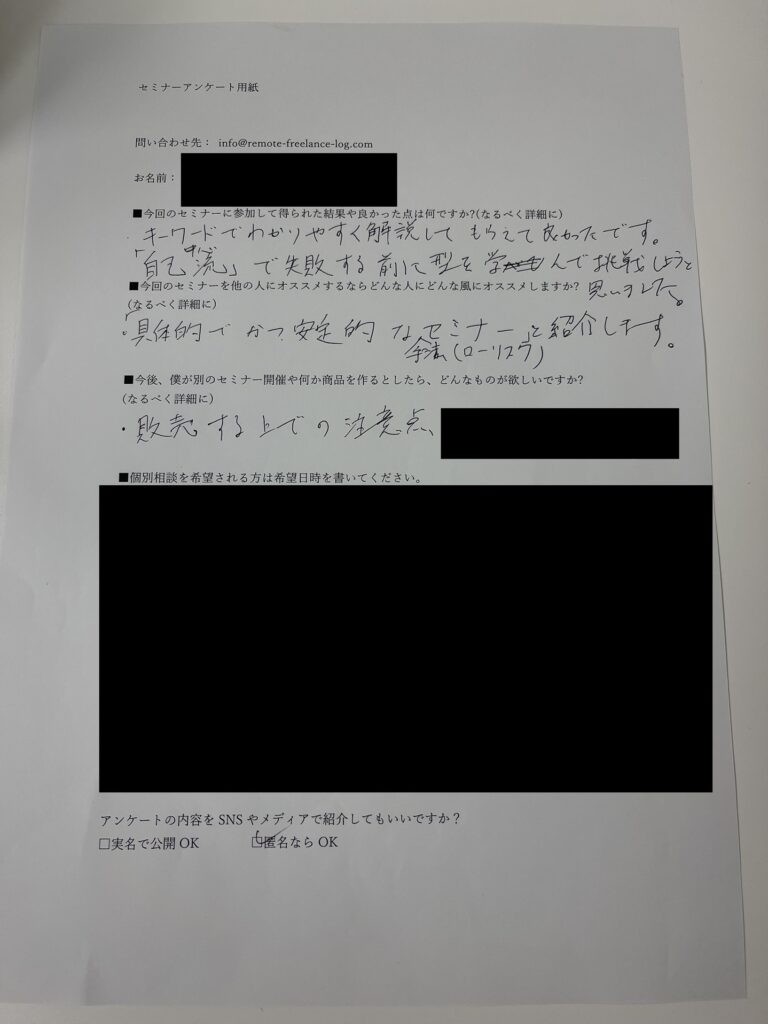 セミナーアンケート用紙
問い合わせ先： info@remote-freelance-log.com
お名前：
■今回のセミナーに参加して得られた結果や良かった点は何ですか?(なるべく詳細に)
・キーワードでわかりやすく解説してもらえて良かったです。
「自己流」で失敗する前に型を学んで挑戦しようと
思いました。
■今回のセミナーを他の人にオススメするならどんな人にどんな風にオススメしますか?
(なるべく詳細に)
・「具体的でかつ安定的なセミナー」と紹介します。
手法(ローリスク)
■今後、僕が別のセミナー開催や何か商品を作るとしたら、どんなものが欲しいですか?
(なるべく詳細に)
・販売する上での注意点、
■個別相談を希望される方は希望日時を書いてください。
アンケートの内容を SNS やメディアで紹介してもいいですか？
□実名で公開 OK □匿名なら OK